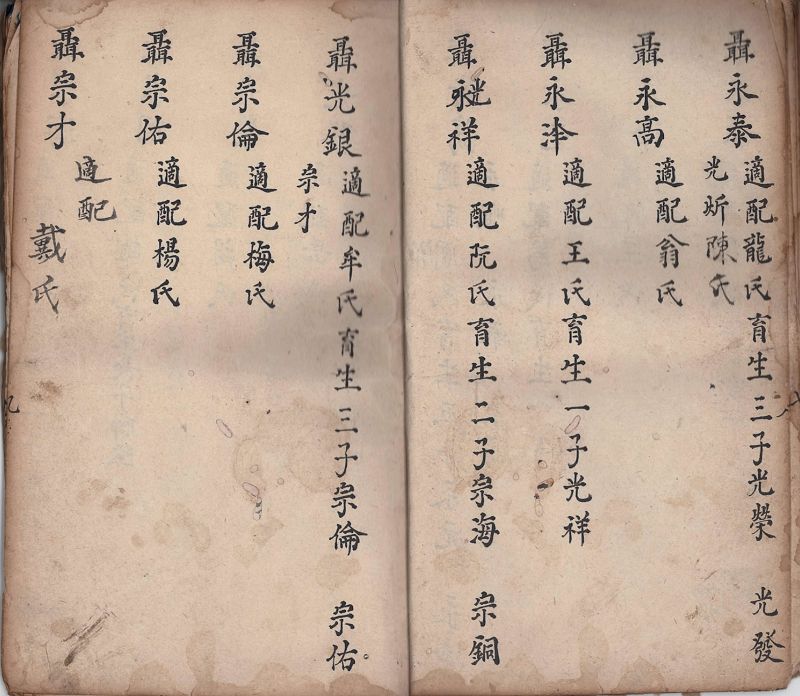 聶永泰適配龍氏育生三子光榮 光發
光炘陳氏
聶永高適配翁氏
聶永泮適配王氏育生一子光祥
聶光祥適配阮氏育生二子宗海 宗銅
聶光銀適配牟氏育生三子宗倫 宗佑
宗才
聶宗倫適配梅氏
聶宗佑適配楊氏
聶宗才適配戴氏
九